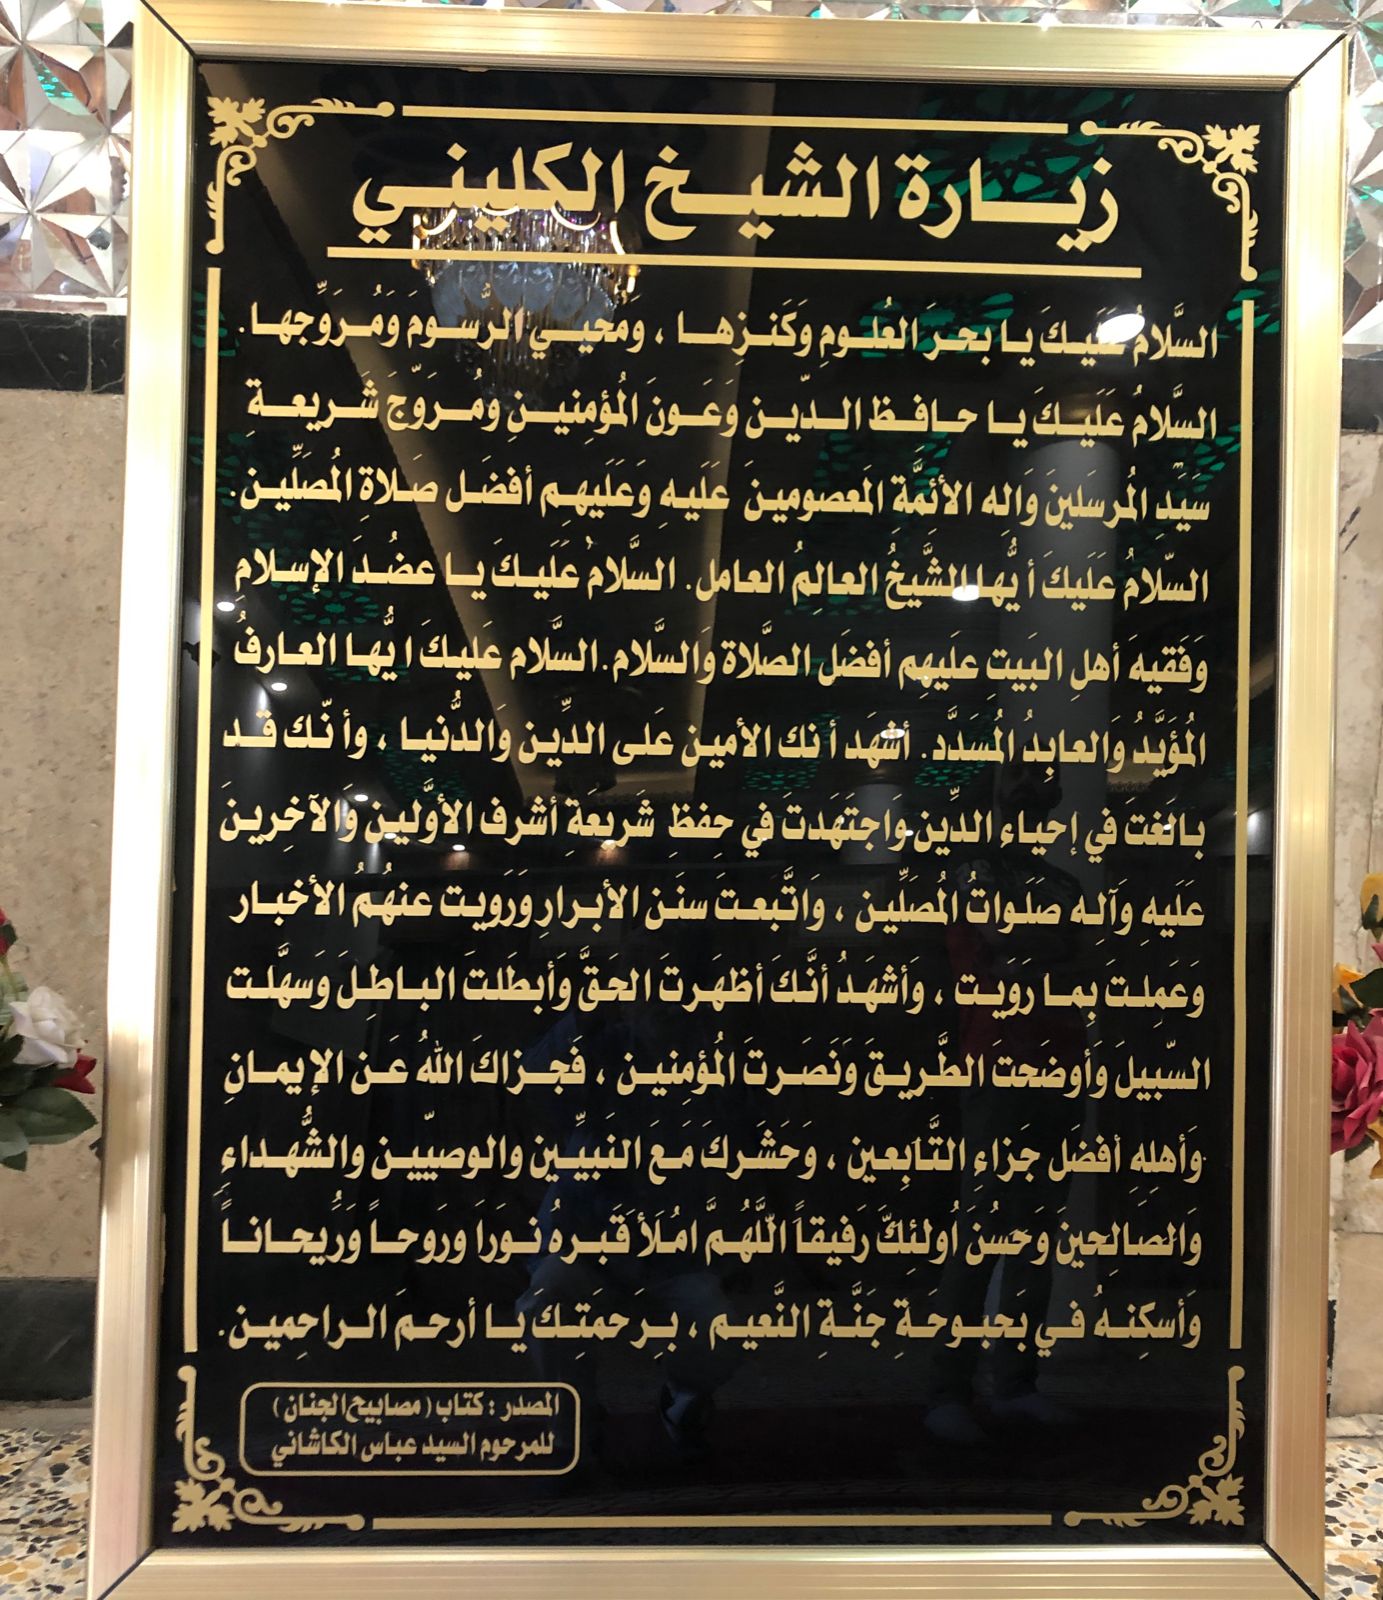 زيــارة الشيــخ الكليني
السَّلامُ عَلَيكَ يا بحرَ العُلومِ وَكَنزِها ، وَمُحيي الرُّسومَ وَمُرَوِّجها.
السَّلامُ عَلَيكَ يا حافظ الدّين وَعَونَ المُؤمِنينِ ومُروَّجَ شَريعةِ
سَيَّدِ المُرسَلينَ وَاله الأئمَّة المَعصومينَ عَلَيهِ وَعَلَيهِم أفضَل صَلاةِ المُصَلِّينَ.
السّلامُ عَلَيكَ أيُّها الشَّيخُ العالِمُ العامل. السَّلامُ عَلَيكَ يا عضُدَ الإسلامِ
وَفَقيهَ أهلِ البَيتِ عليَهِم أفضَل الصَّلاة وَالسَّلام. السَّلام عَليكَ ايُّها العارفُ
المُؤَيَّدُ وَالعابدُ المُسَدَّد. أشهَد أنك الأمين عَلى الدِّين وَالدُّنيا ، وأنّك قد
بالَغتَ في إحياء الدِّين وَاجتَهَدتَ في حِفظِ شَريعَةِ أشرف الأوَّلين وَالآخِرينَ
عَلَيهِ وَآلِه صَلَواتُ المُصَلِّين ، وَاتَّبعتَ سنَن الأبرارِ وَرَويت عنهُمُ الأخبار
وَعَمِلتَ بِما رَوَيت ، وَأشهَدُ أنَّكَ أظهَرتَ الحَقَّ وَأبطَلتَ الباطِلَ وَسهَّلت
السّبيلَ وَأوضَحتَ الطَّريقَ وَنَصَرتَ المُؤمِنين ، فَجزاكَ اللهُ عَن الإيمانِ
وَأهلِهِ أفضَل جَزاءِ التَّابِعين ، وَحَشَركَ مَعَ النَبيِّين والوصيّين والشُّهداءِ
وَالصَالِحينَ وَحَسُنَ اُولئِكَ رَفيقاً اللَّهُمَّ امُلَأ قَبرهُ نوراَ وَرَوحاً وَرَيحاناً
وَأسكِنهُ في بَحبوحَةِ جَنَّةِ النَّعيم ، بِرَحمَتِكَ يا أرحمَ الراحِمين.
المصدر : كتاب (مصابيح الجنان)
للمرحوم السيد عباس الكاشاني